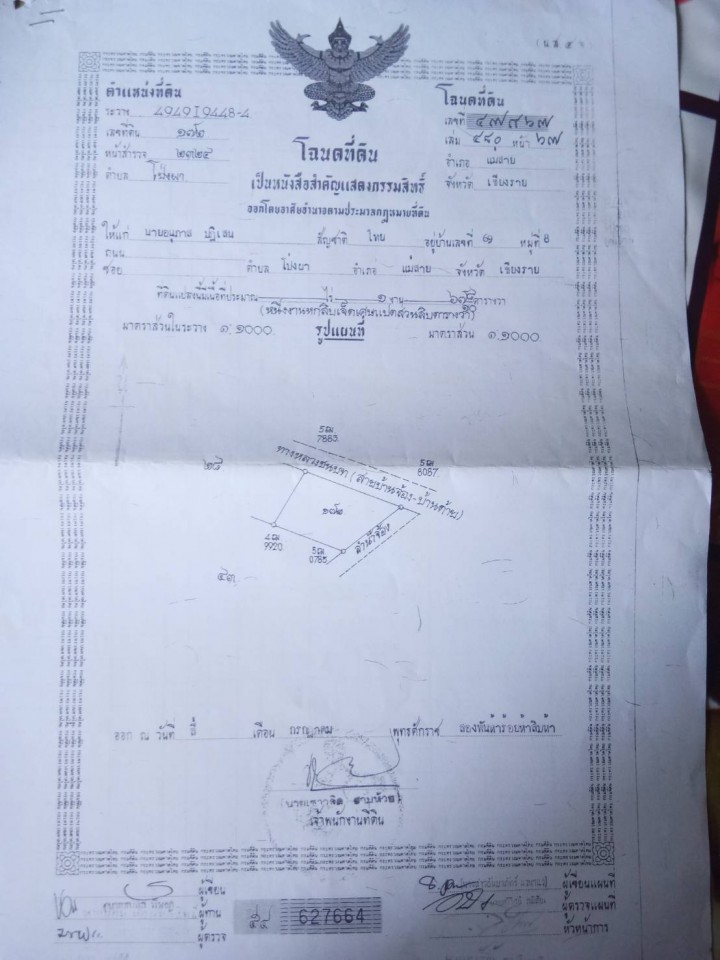 (น.ส. ๔ )
ตำแหน่งที่ดิน
ระวาง 4949 I 9448-4
เลขที่ดิน ๑๗๒
หน้าสำรวจ ๒๓๒๕
ตำบล โป่งผา
โฉนดที่ดิน
เลขที่ ๔๗๙๖๗
เล่ม ๔๘๐ หน้า ๖๗
อำเภอ แม่สาย
จังหวัด เชียงราย
โฉนดที่ดิน
เป็นหนังสือสำคัญแสดงกรรมสิทธิ์
ออกโดยอาศัยอำนาจตามประมวลกฎหมายที่ดิน
ให้แก่ นายอนุภาส ปฏิเสน สัญชาติ ไทย อยู่บ้านเลขที่ หมู่ที่ 8
ถนน
ซอย ตำบล โป่งผา อำเภอ แม่สาย จังหวัด เชียงราย
ที่ดินแปลงนี้มีเนื้อที่ประมาณ ไร่ ๑ งาน ตารางวา
(หนึ่งงานหกสิบเจ็ดเศษแปดส่วนสิบตารางวา)
มาตราส่วนในระวาง ๑:๑๐๐๐ รูปแผนที่ มาตราส่วน ๑:๑๐๐๐
5ฌ
7883
5ฌ
8087
ทางหลวงชนบท (สายบ้านจ้อง-บ้านถ้ำ)
๒๕
๑๗๒
4ฌ
9920
5ฌ
0785
ลำน้ำจ้อง
๕๓
ออก ณ วันที่ สี่ เดือน กรกฎาคม พุทธศักราช สองพันห้าร้อยห้าสิบห้า
เจ้าพนักงานที่ดิน
ผู้เขียน
ผู้ทาน
ผู้ตรวจ
627664
ผู้เขียนแผนที่
ผู้ตรวจแผนที่
หัวหน้าการ